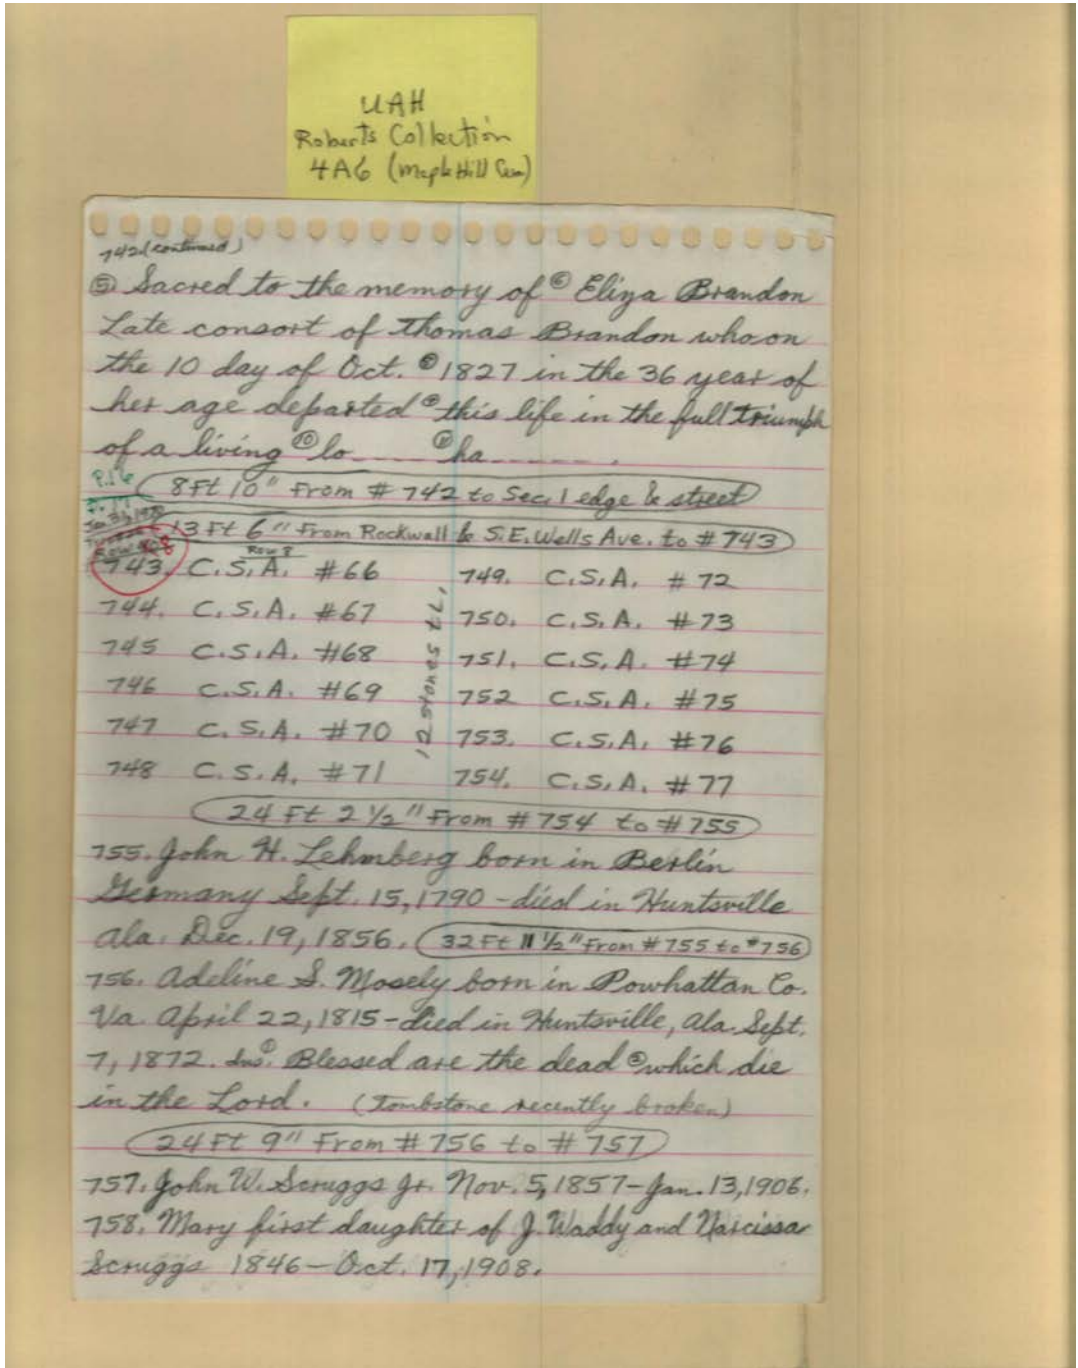 UAH
Roberts Collection
4A6 (Maple Hill Cem)
742 (continued)
⑤ Sacred to the memory of ⑥ Eliza Brandon
Late consort of Thomas Brandon who on
the 10 day of Oct. 1827 in the 36 year of
her age departed this life in the full triumph
of a living ⑩ lo____ ⑪ ha_____.
P. 16
8 Ft 10" From # 742 to Sec. 1 edge & street
13 Ft 6" From Rockwall & S.E. Wells Ave. to # 743
Row 8
Row 8
743. C.S.A. #66
744. C.S.A. #67
745 C.S.A. #68
746 C.S.A. #69
747 C.S.A. #70
748 C.S.A. #71
12 stones
749. C.S.A. #72
750. C.S.A. #73
751. C.S.A. #74
752 C.S.A. #75
753. C.S.A. #76
754. C.S.A. #77
24 Ft 2 1/2" From #754 to #755
755. John H. Lehmberg born in Berlin
Germany Sept. 15, 1790 - died in Huntsville
Ala. Dec. 19, 1856. 32 Ft 11 1/2" From #755 to #756
756. Adeline S. Mosely born in Powhattan Co.
Va. April 22, 1815 - died in Huntsville, Ala. Sept.
7, 1872. Ins. ① Blessed are the dead ② which die
in the Lord. (Tombstone recently broken)
24 Ft 9" From # 756 to # 757
757. John W. Scruggs Jr. Nov. 5, 1857 - Jan. 13, 1906.
758. Mary first daughter of J. Waddy and Narcissa
Scruggs 1846 - Oct. 17, 1908.